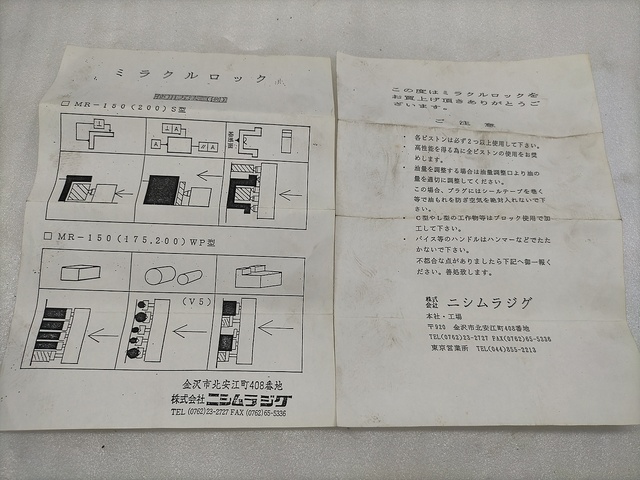 ミラクルロック
□ MR-150(200)S型
⊥ A
A
// A
□ MR-150(175,200)WP型
(V5)
金沢市北安江町408番地
株式会社 ニシムラジグ
TEL (0762)23-2727 FAX (0762)65-5336
この度はミラクルロックを
お買上げ頂きありがとうご
ざいます。
ご注意
・ 各ピストンは必ず2つ以上使用して下さい。
・ 高性能を得る為に全ピストンの使用をお奨
めします。
・ 油量を調整する場合は油量調整口より油の
量を適切に調整してください。
この場合、プラグにはシールテープを巻く
等で油もれを防ぎ空気を絶対入れないで下
さい。
・ C型やL型の工作物等はブロック使用で加
工して下さい。
・ バイス等のハンドルはハンマーなどでたた
かないで下さい。
不都合な点がありましたら下記へ御一報く
ださい。善処致します。
株式会社 ニシムラジグ
本社・工場
〒920 金沢市北安江町408番地
TEL(0762)23-2727 FAX(0762)65-5336
東京営業所 TEL(044)855-2213